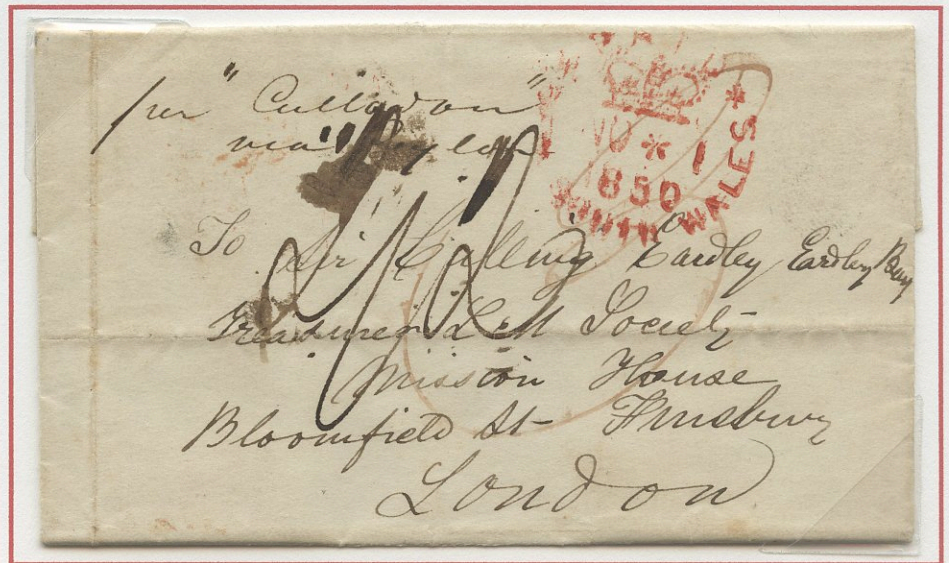 per "Culloden"
via Ceylon
10 * 1
1850
SOUTH WALES *
To Sir Culling Eardley Eardley Bart
Treasurer L M Society
Mission House
Bloomfield St - Finsbury
London